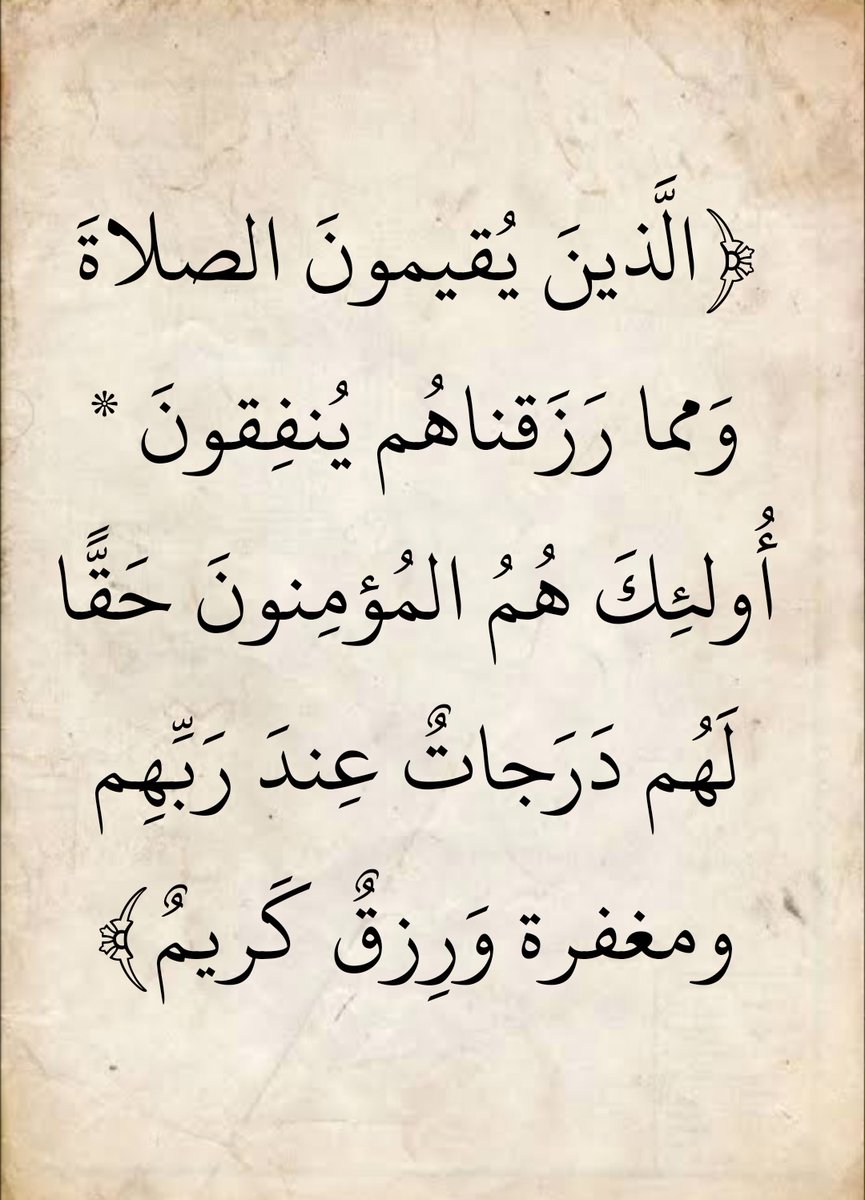 ﴿الَّذينَ يُقيمونَ الصلاةَ
وَمما رَزَقناهُم يُنفِقونَ *
أُولئِكَ هُمُ المُؤمِنونَ حَقًّا
لَهُم دَرَجاتٌ عِندَ رَبِّهِم
ومغفرة وَرِزقٌ كَريمٌ﴾